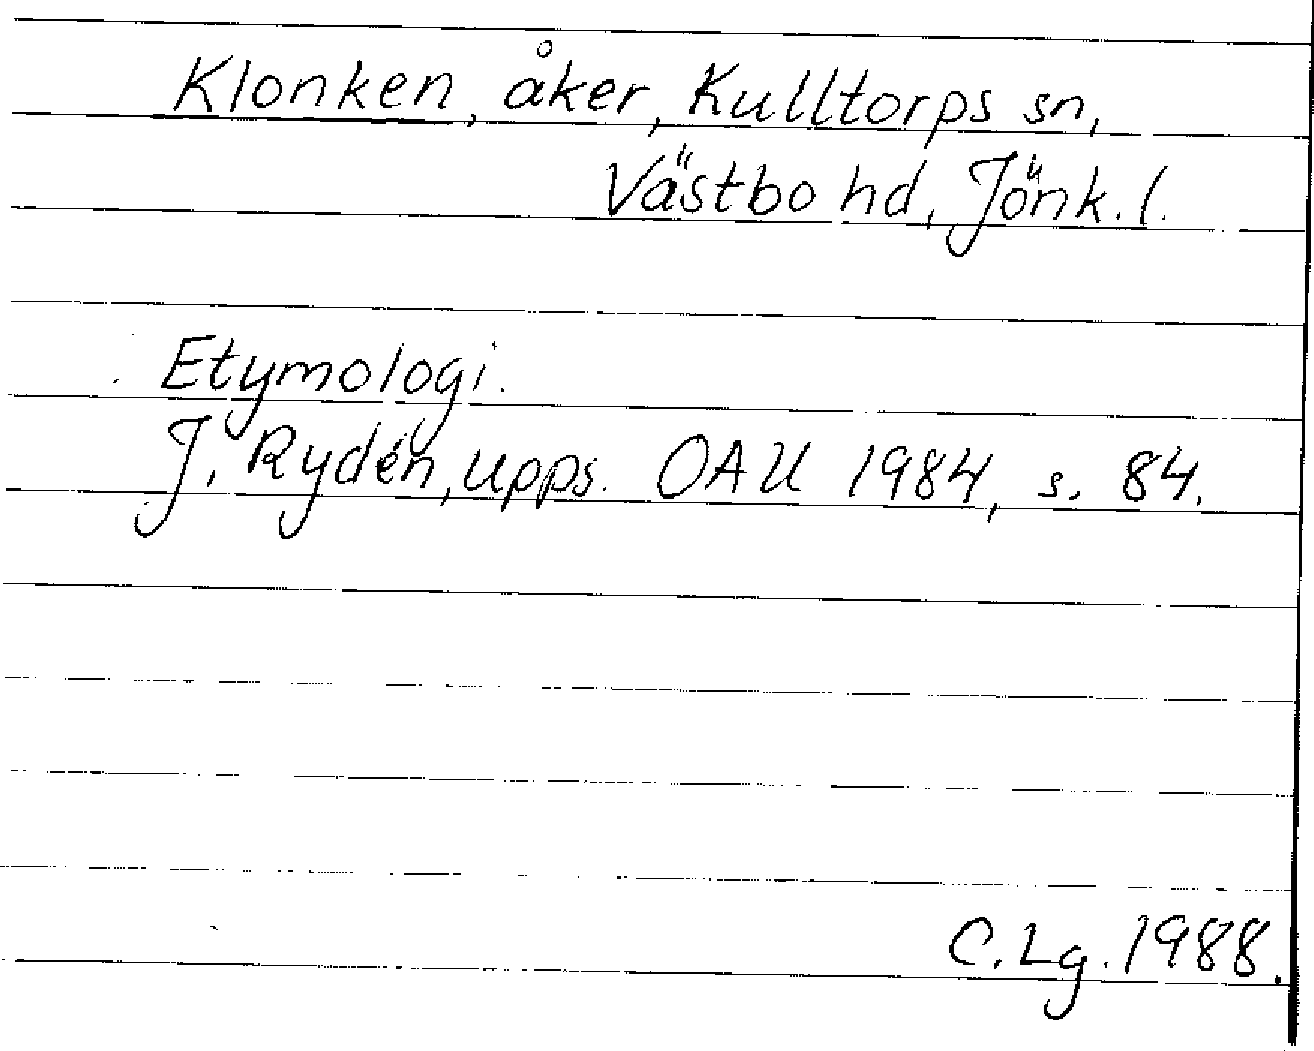 Klonken, åker, Kulltorps sn,
Västbo hd, Jönk. l.
Etymologi.
J. Rydén, upps. OAU 1984, s. 84.
C. Lg. 1988.